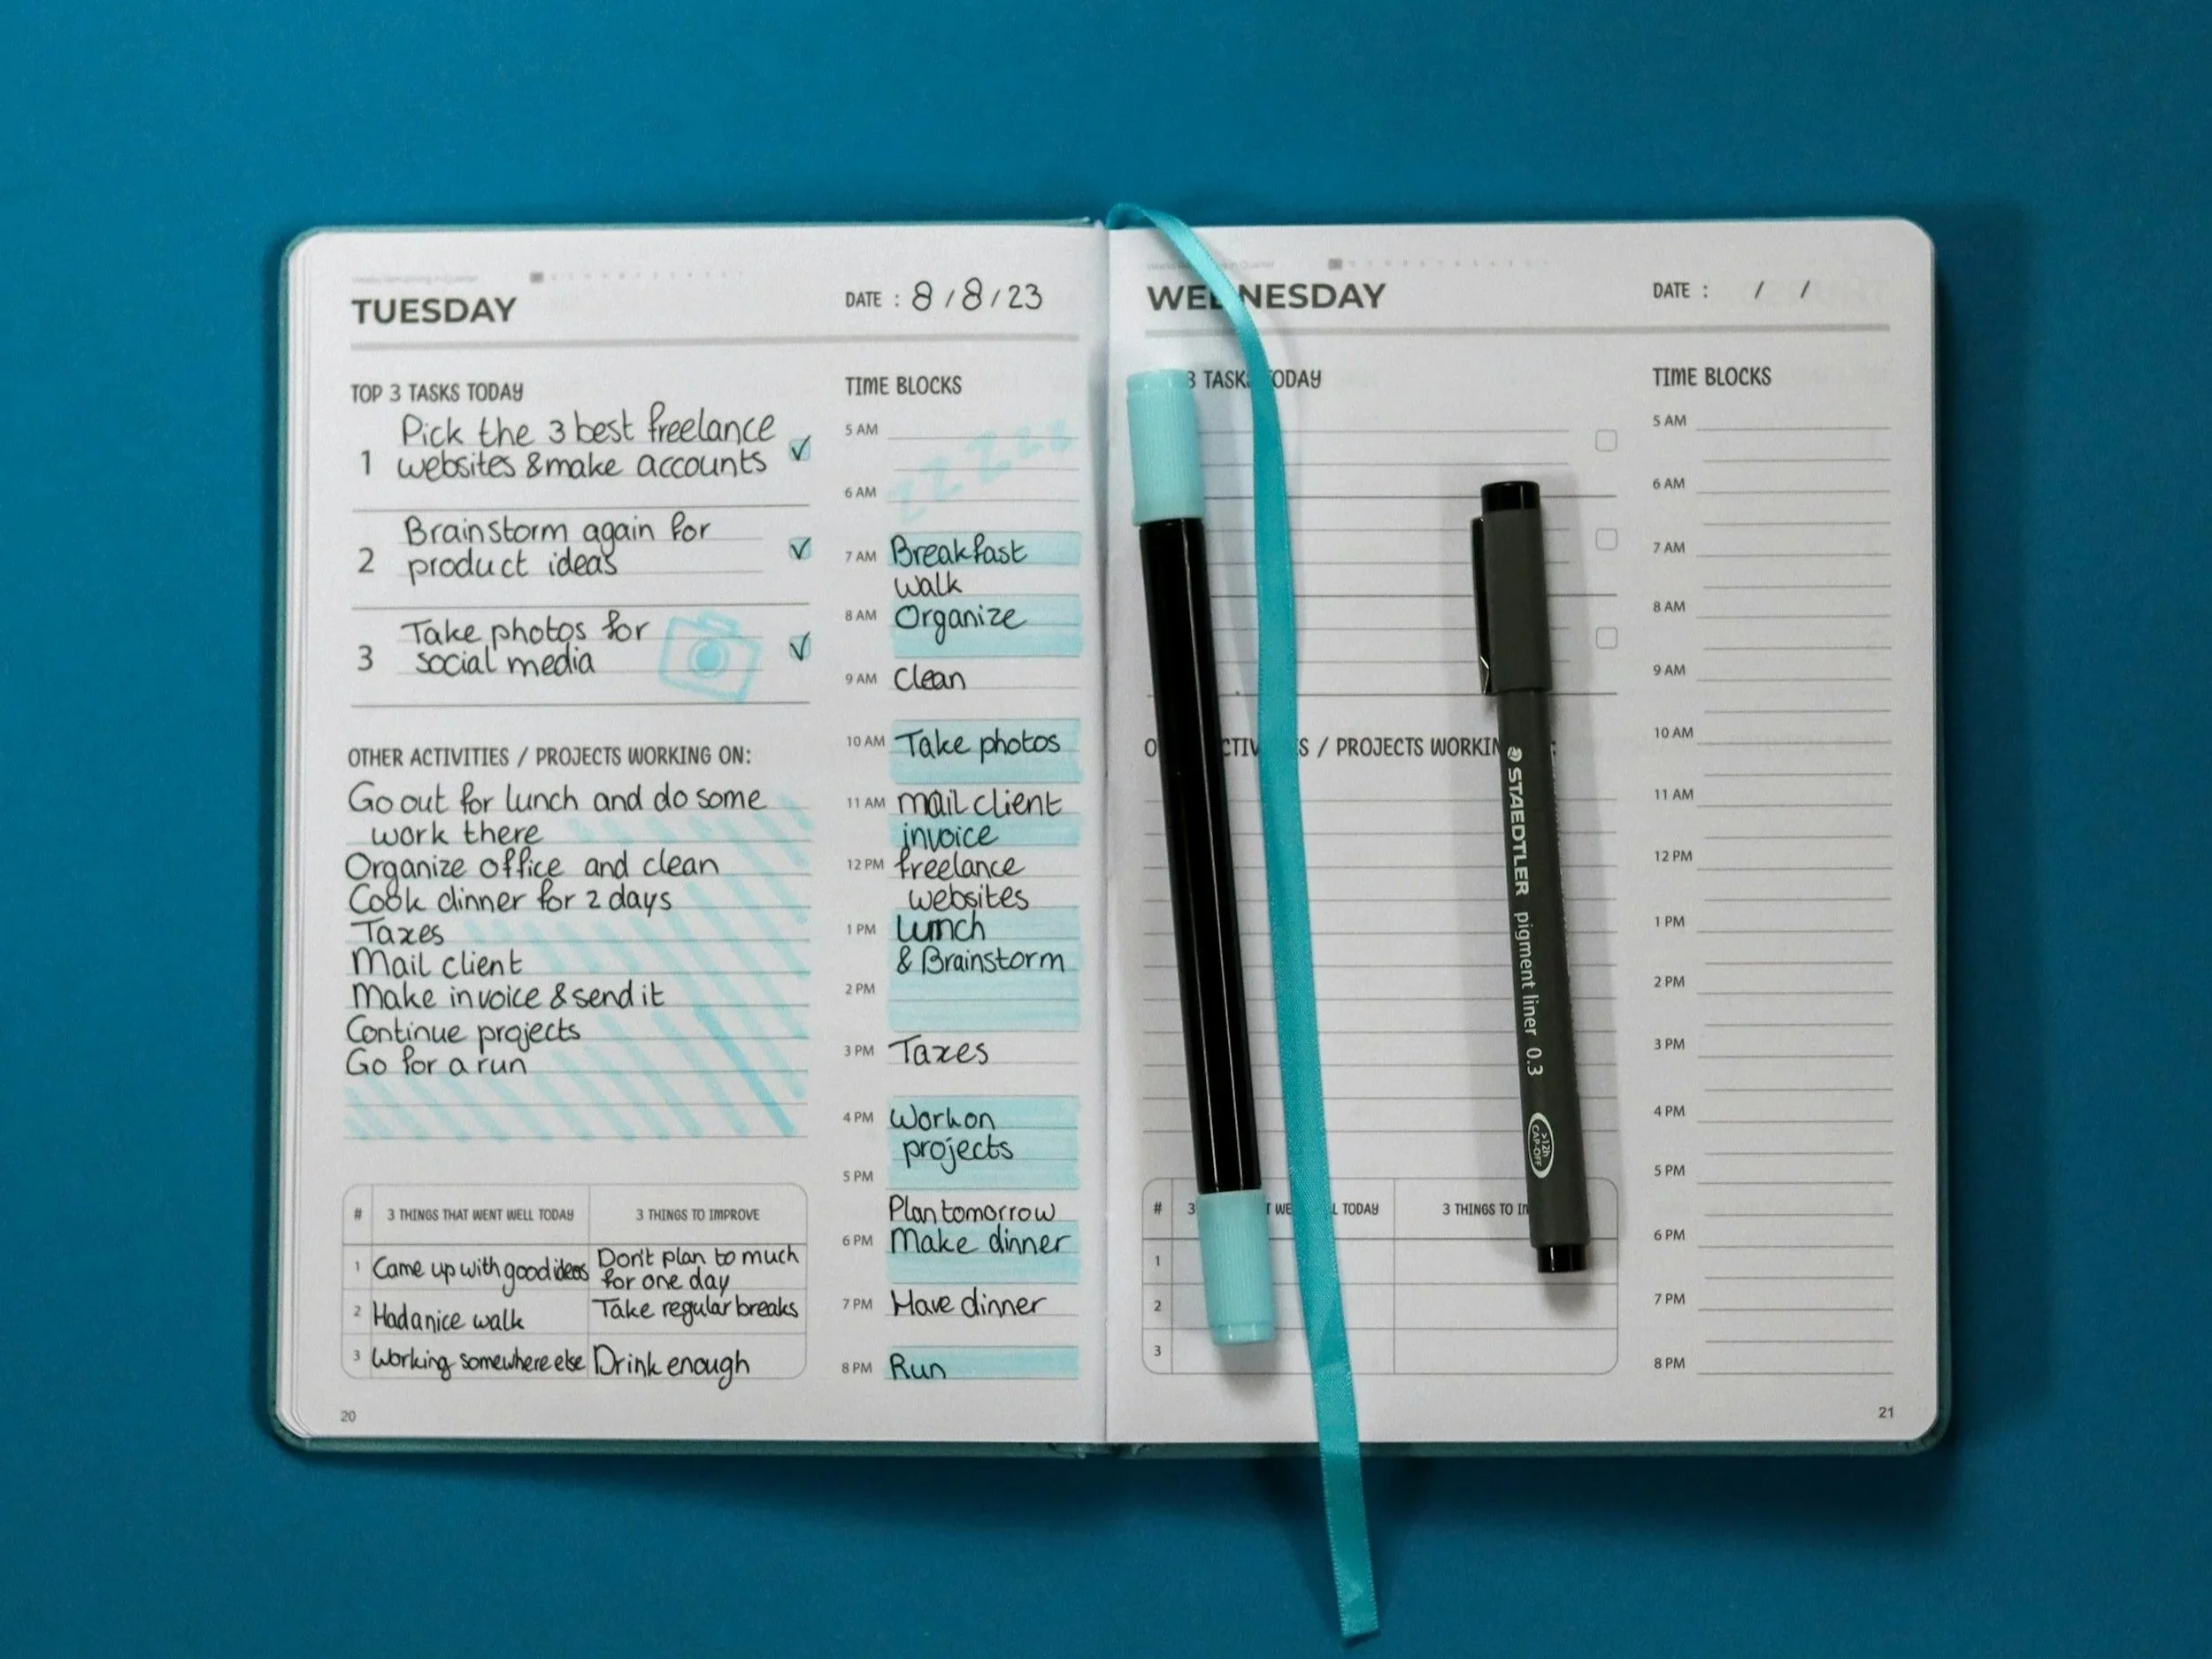 TUESDAY
DATE : 8 / 8 / 23
TOP 3 TASKS TODAY
1 Pick the 3 best freelance
websites & make accounts
2 Brainstorm again for
product ideas
3 Take photos for
social media
OTHER ACTIVITIES / PROJECTS WORKING ON:
Go out for lunch and do some
work there
Organize office and clean
Cook dinner for 2 days
Taxes
Mail client
Make invoice & send it
Continue projects
Go for a run
# 3 THINGS THAT WENT WELL TODAY 3 THINGS TO IMPROVE
1 Came up with good ideas Don't plan to much
for one day
2 Had a nice walk Take regular breaks
3 Working somewhere else Drink enough
20
TIME BLOCKS
5 AM
zzZzzz
6 AM
7 AM Breakfast
walk
8 AM Organize
9 AM Clean
10 AM Take photos
11 AM mail client
invoice
12 PM freelance
websites
1 PM Lunch
& Brainstorm
2 PM
3 PM Taxes
4 PM Work on
projects
5 PM
Plan tomorrow
6 PM Make dinner
7 PM Have dinner
8 PM Run
WEDNESDAY
DATE : / /
3 TASKS TODAY
/ PROJECTS WORKIN
# 3 TODAY 3 THINGS TO
1
2
3
TIME BLOCKS
5 AM
6 AM
7 AM
8 AM
9 AM
10 AM
11 AM
12 PM
1 PM
2 PM
3 PM
4 PM
5 PM
6 PM
7 PM
8 PM
21
STAEDTLER pigment liner 0.3
>12h
CAP-OFF